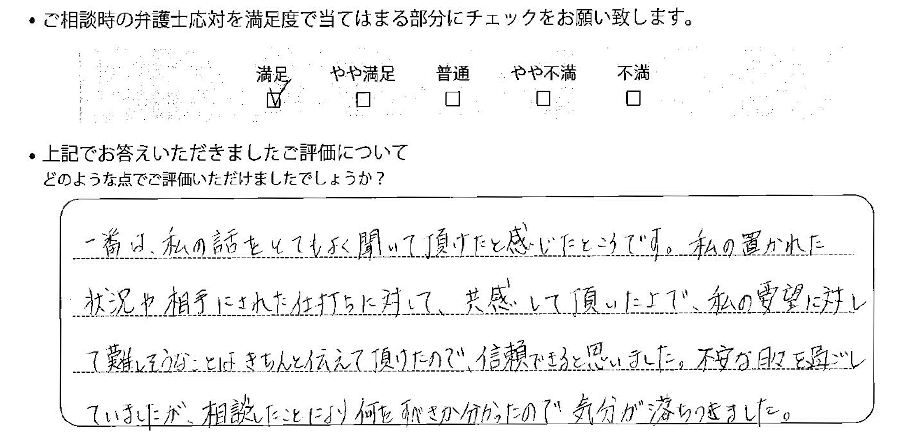 ・ご相談時の弁護士応対を満足度で当てはまる部分にチェックをお願い致します。
満足 やや満足 普通 やや不満 不満
☑ □ □ □ □
・上記でお答えいただきましたご評価について
どのような点でご評価いただけましたでしょうか？
一番は、私の話をとてもよく聞いて頂けたと感じたところです。私の置かれた
状況や相手にされた仕打ちに対して、共感して頂いた上で、私の要望に対し
て難しそうなことはきちんと伝えて頂けたので、信頼できると思いました。不安な日々を過ごし
ていましたが、相談したことにより何をすべきか分かったので気分が落ちつきました。